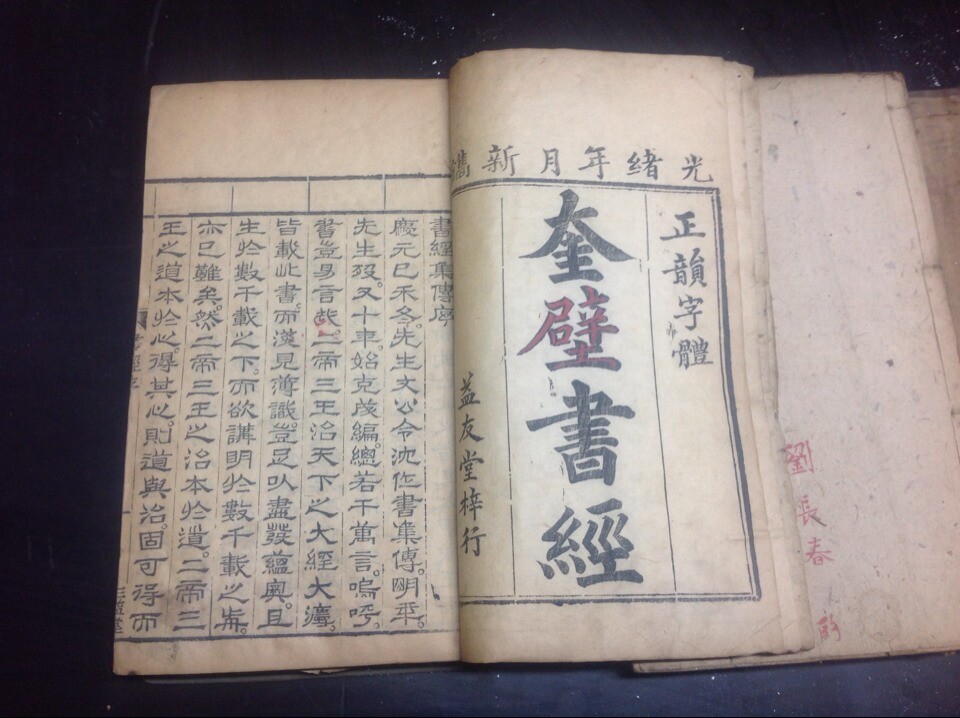 劉長春
光緒年月新鐫
正韻字體
奎壁書經
益友堂梓行
書經集傳序
慶元己未冬。先生文公令沈作書集傳。明年。
先生歿。又十年。始克成編。總若干萬言。嗚呼。
書豈易言哉。二帝三王治天下之大經大灋。
皆載此書。而淺見薄識。豈足以盡發蘊奧。且
生於數千載之下。而欲講明於數千載之前。
亦已難矣。然二帝三王之治本於道。二帝三
王之道本於心。得其心。則道與治。固可得而